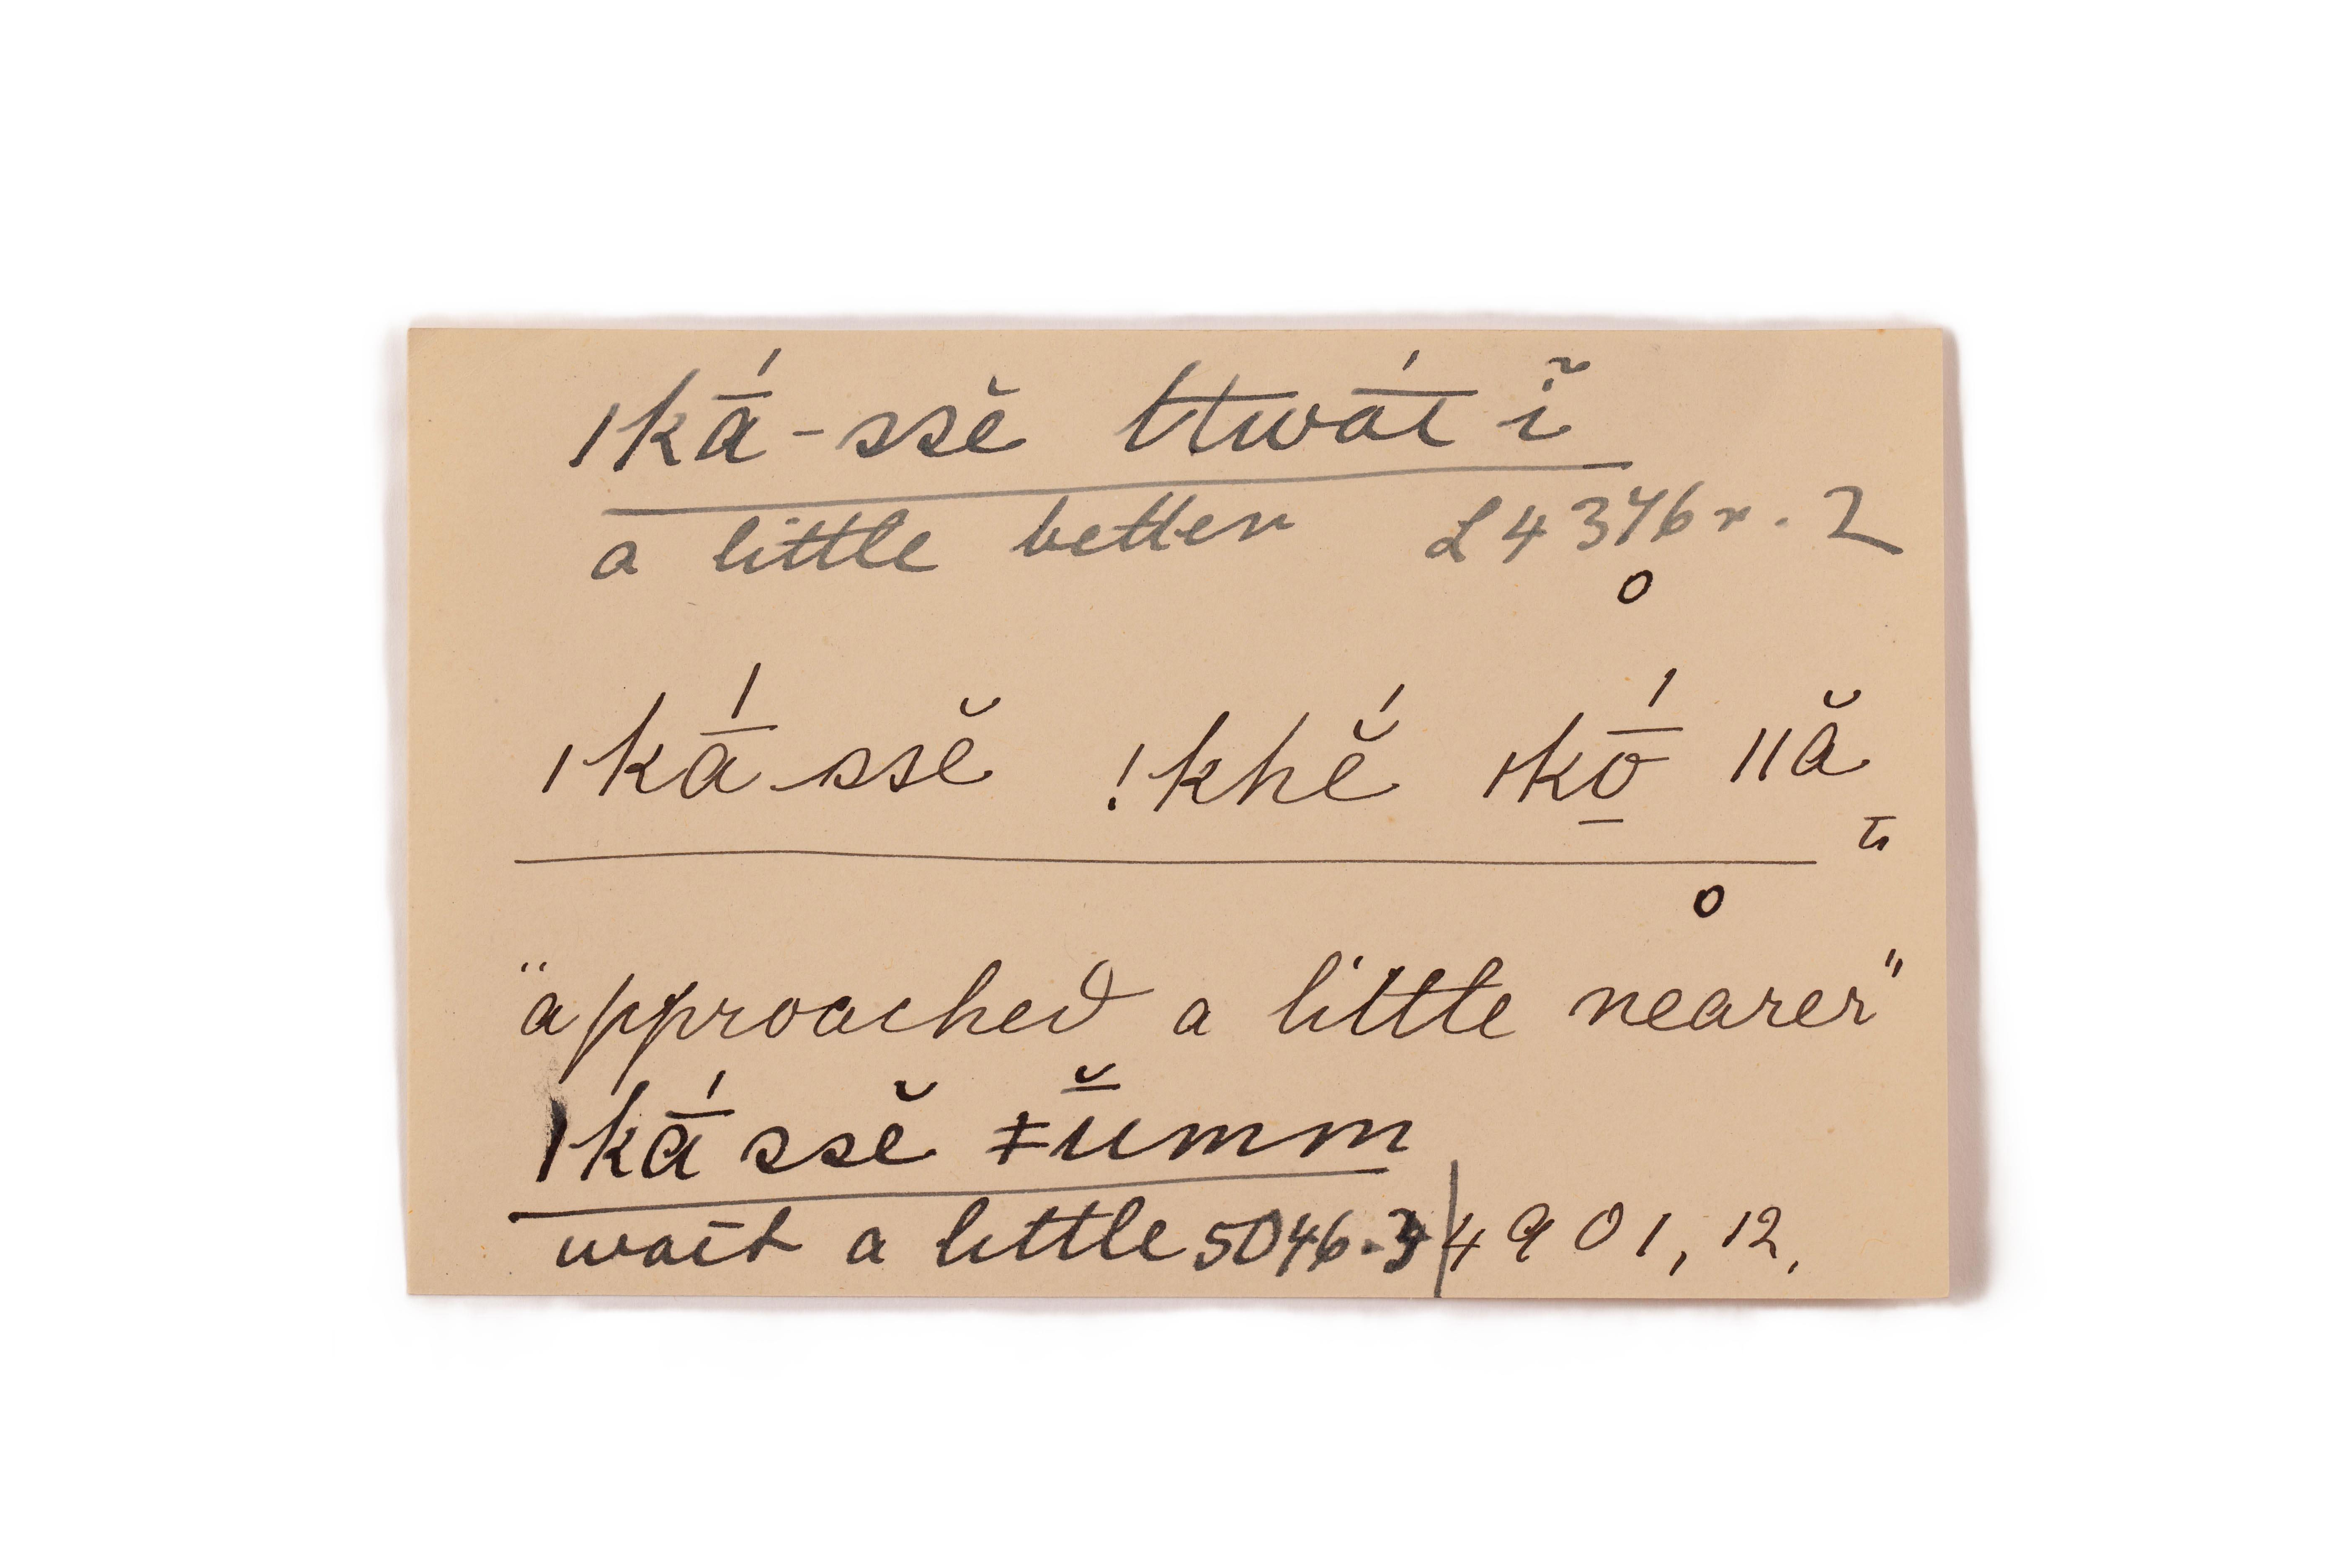 ǀkā́-ssĕ ttwā́ī ĭ̃
a little better L4346r.2
o
ǀkā́ssĕ !khĕ́ ǀkṓ̠ ǁă
o
"approached a little nearer"
ǀkā́ssĕ ǂū̆mm
wait a little 5046.3 | 4901,12,